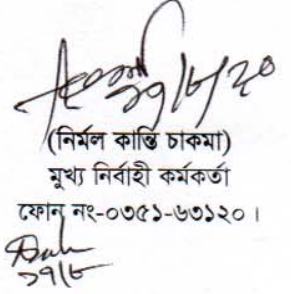 ২৭/৮/২০
(নির্মল কান্তি চাকমা)
মুখ্য নির্বাহী কর্মকর্তা
ফোন নং-০৩৫১-৬৩১২০।
২৭/৮